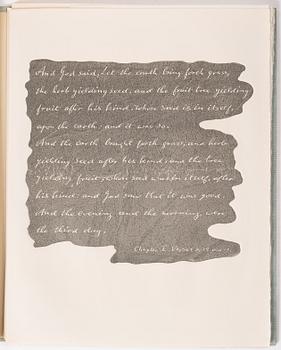 And God said, Let the earth bring forth grass,
the herb yielding seed, and the fruit tree yielding
fruit after his kind, whose seed is in itself,
upon the earth: and it was so.
And the earth brought forth grass, and herb
yielding seed after his kind, and the tree
yielding fruit, whose seed was in itself, after
his kind: and God saw that it was good.
And the evening and the morning were
the third day.
Chapter I. Verses